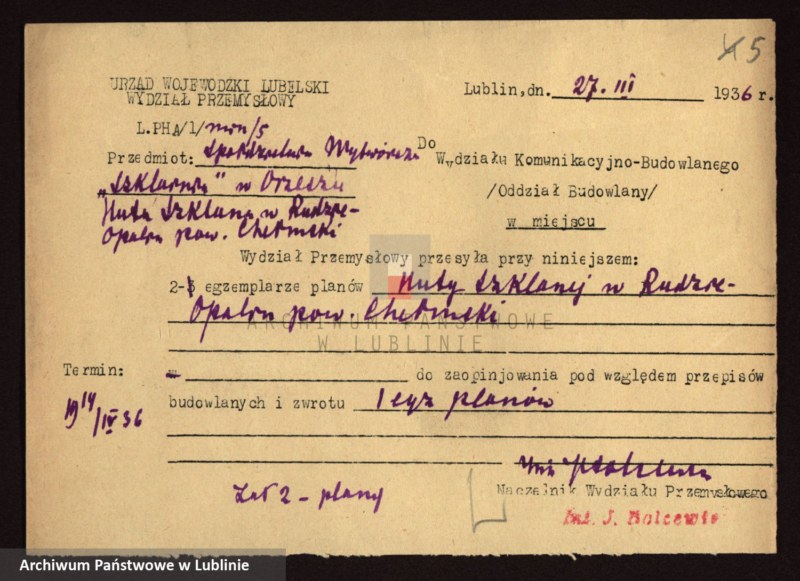 5
URZĄD WOJEWODZKI LUBELSKI
WYDZIAŁ PRZEMYSŁOWY
Lublin, dn. 27. III 1936 r.
L.PHA/1/
Przedmiot: Spółdzielnia Wytwórcza
„Szklarnia" w Orzeszu
Huta Szklana w Rudzie-
Opalin pow. Chełmski
Do
Wydziału Komunikacyjno-Budowlanego
/Oddział Budowlany/
w miejscu
Wydział Przemysłowy przesyła przy niniejszem:
2- egzemplarze planów Huty Szklanej w Rudzie-
Opalin pow. Chełmski
ARCHIWUM PAŃSTWOWE
W LUBLINIE
Termin:
14/IV 36
do zaopinjowania pod względem przepisów
budowlanych i zwrotu 1 egz planów
Naczelnik Wydziału Przemysłowego
Inż. J.
Zał 2 - plany
Archiwum Państwowe w Lublinie